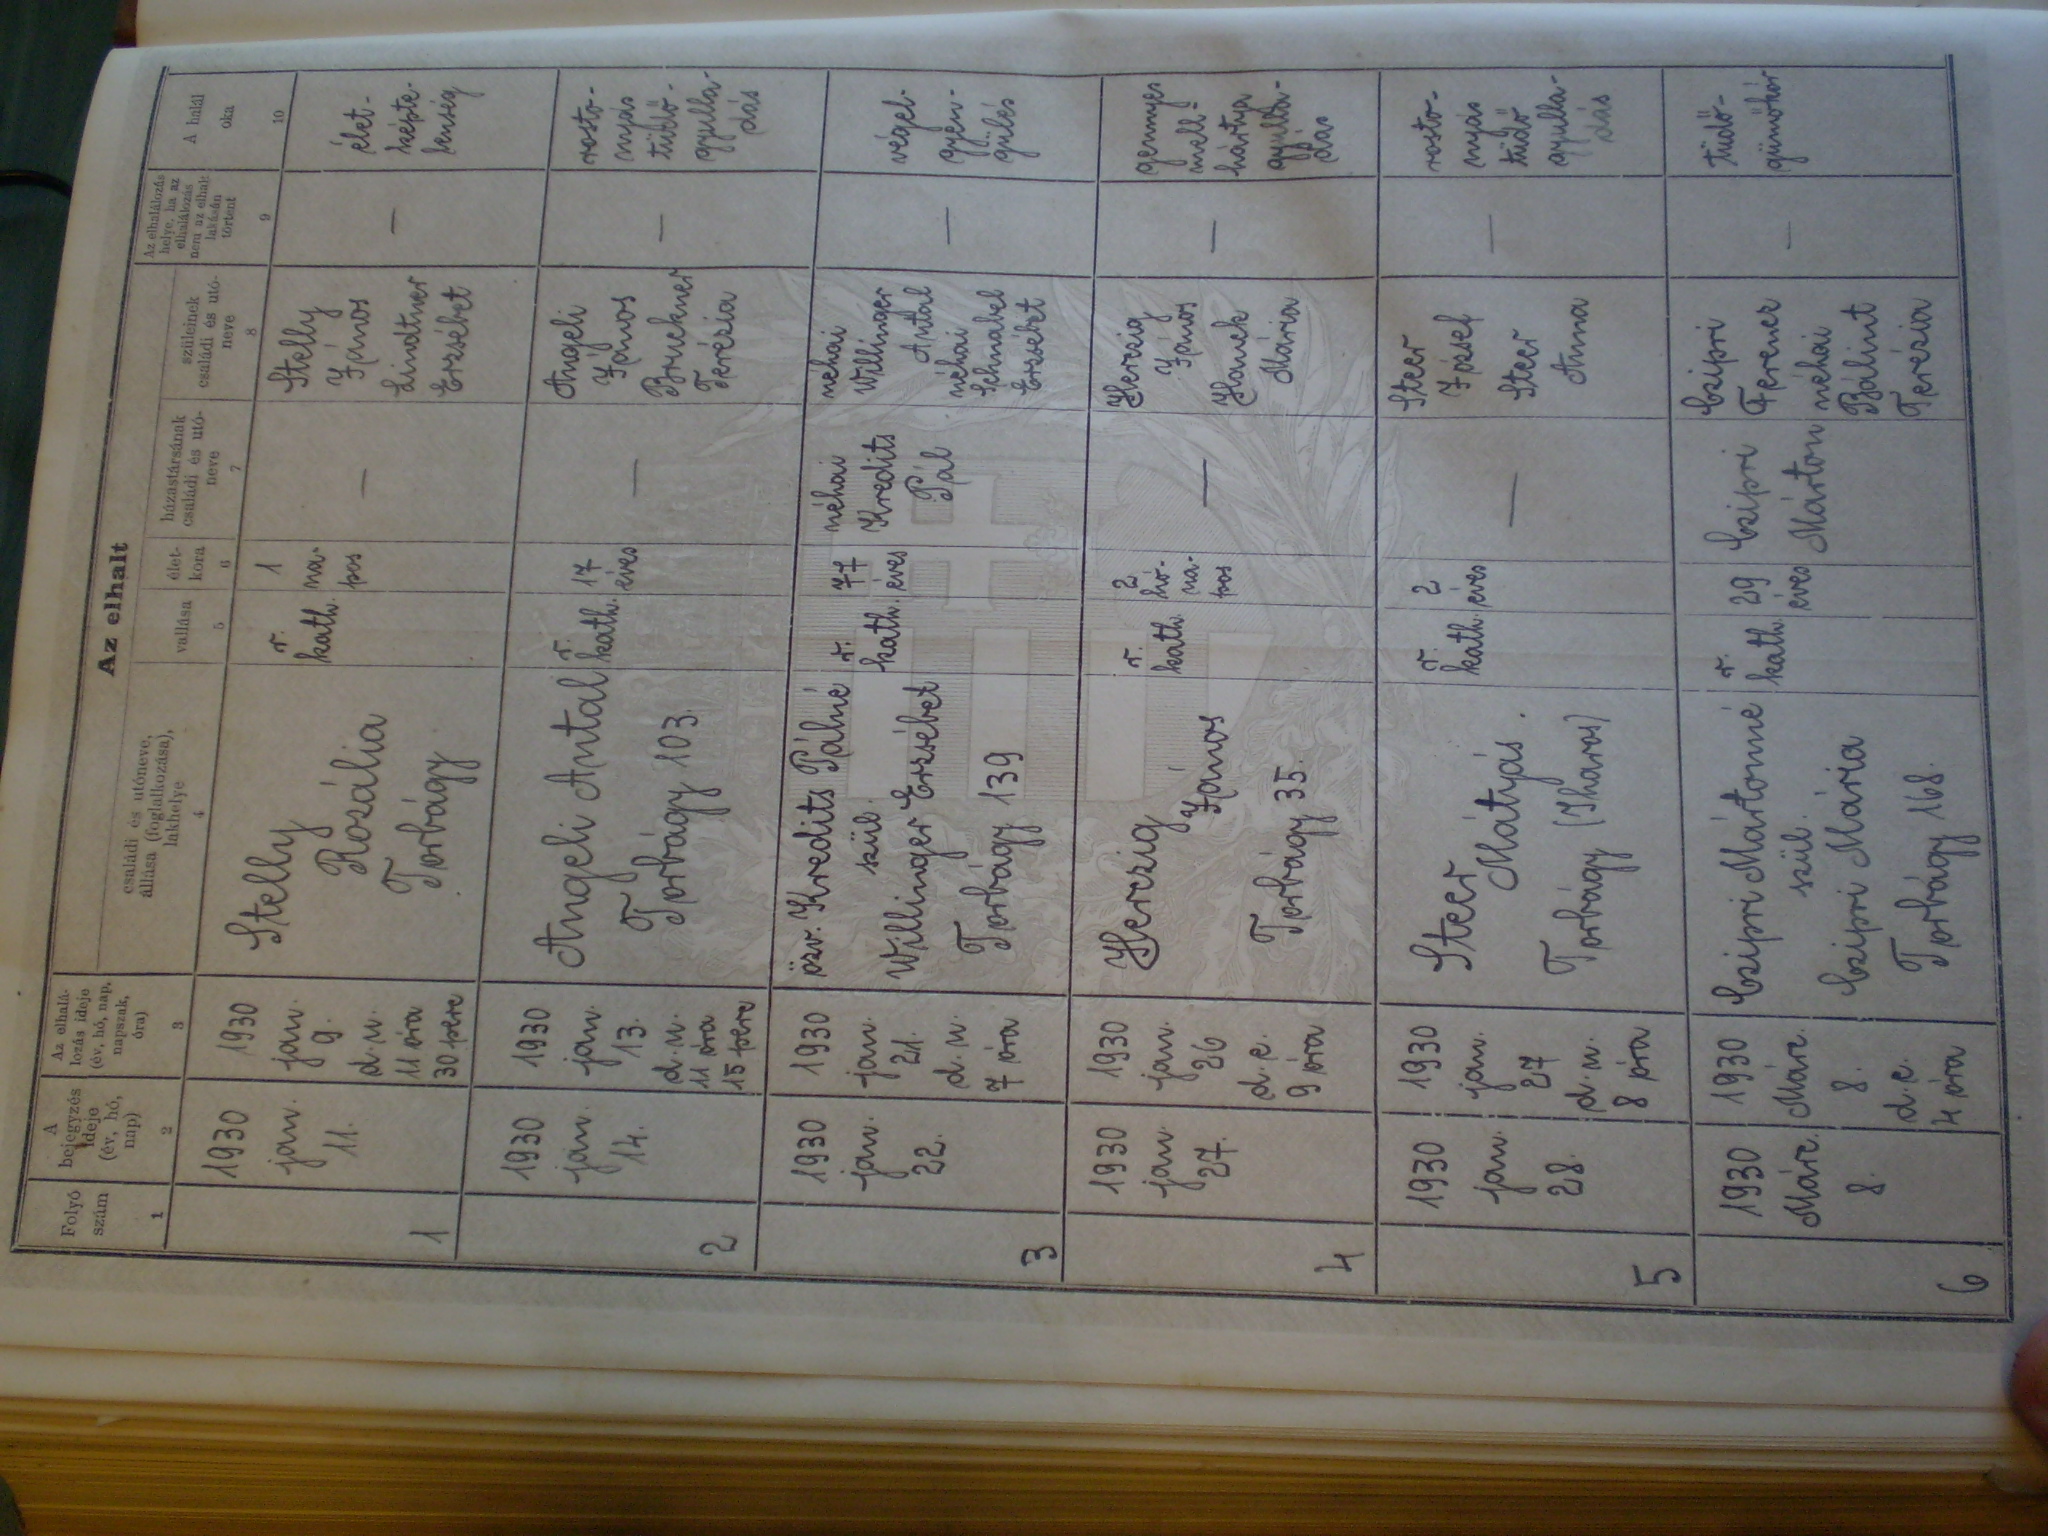 Az elhalt
Folyó
szám
A
bejegyzés
ideje
(év, hó,
nap)
Az elhalá-
lozás ideje
(év, hó, nap,
napszak,
óra)
családi és utóneve,
állása (foglalkozása),
lakhelye
vallása
élet-
kora
házastársának
családi és utó-
neve
szüleinek
családi és utó-
neve
Az elhalálozás
helye, ha az
elhalálozás
nem az elhalt
lakásán
történt
A halál
oka
1
2
3
4
5
6
7
8
9
10
1
1930
jan.
11.
1930
jan.
9.
d. u.
11 óra
30 perc
Stelly
Rozália
Torbágy
r.
kath.
1
na-
pos
—
Stelly
János
Lindtner
Erzsébet
—
élet-
képte-
lenség
2
1930
jan.
14.
1930
jan.
13.
d. u.
11 óra
15 perc
Angeli Antal
Torbágy 103.
r.
kath.
17
éves
—
Angeli
János
Bruckner
Terézia
—
rosto-
nyás
tüdő-
gyulla-
dás
3
1930
jan.
22.
1930
jan.
21.
d. u.
7 óra
özv. Kredits Pálné
szül.
Willinger Erzsébet
Torbágy 139
r.
kath.
77
éves
néhai
Kredits
Pál
néhai
Willinger
Antal
néhai
Schnabel
Erzsébet
—
végel-
gyen-
gülés
4
1930
jan.
27.
1930
jan.
26
d. e.
9 óra
Herczig
János
Torbágy 35.
r.
kath.
2
hó-
na-
pos
—
Herczig
János
Hanek
Mária
—
gennyes
mell-
hártya
gyulla-
dás
5
1930
jan.
28.
1930
jan.
27
d. u.
8 óra
Steer
Mátyás.
Torbágy (Iharos)
r.
kath.
2
éves
—
Steer
József
Steer
Anna
—
rosto-
nyás
tüdő
gyulla-
dás
6
1930
Márc.
8.
1930
Márc.
8.
d. e.
4 óra
Czipri Mártonné
szül.
Czipri Mária
Torbágy 168.
r.
kath.
29
éves
Czipri
Márton
Czipri
Ferenc
néhai
Bálint
Terézia
—
tüdő-
gümőkór